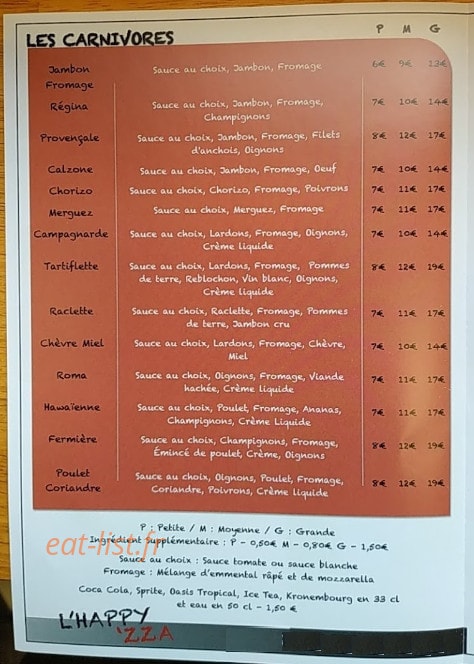 LES CARNIVORES P M G
Jambon Sauce au choix, Jambon, Fromage 6€ 9€ 13€
Fromage
Régina Sauce au choix, Jambon, Fromage, 7€ 10€ 14€
Champignons
Provençale Sauce au choix, Jambon, Fromage, Filets 8€ 12€ 17€
d'anchois, Oignons
Calzone Sauce au choix, Jambon, Fromage, Oeuf 7€ 10€ 14€
Chorizo Sauce au choix, Chorizo, Fromage, Poivrons 7€ 11€ 17€
Merguez Sauce au choix, Merguez, Fromage 7€ 11€ 17€
Campagnarde Sauce au choix, Lardons, Fromage, Oignons, 7€ 10€ 14€
Crème liquide
Tartiflette Sauce au choix, Lardons, Fromage, Pommes 8€ 12€ 19€
de terre, Reblochon, Vin blanc, Oignons,
Crème liquide
Raclette Sauce au choix, Raclette, Fromage, Pommes 7€ 11€ 17€
de terre, Jambon cru
Chèvre Miel Sauce au choix, Lardons, Fromage, Chèvre, 7€ 10€ 14€
Miel
Roma Sauce au choix, Oignons, Fromage, Viande 7€ 11€ 17€
hachée, Crème liquide
Hawaïenne Sauce au choix, Poulet, Fromage, Ananas, 7€ 11€ 17€
Champignons, Crème Liquide
Fermière Sauce au choix, Champignons, Fromage, 8€ 12€ 19€
Émincé de poulet, Crème, Oignons
Poulet Sauce au choix, Oignons, Poulet, Fromage, 8€ 12€ 19€
Coriandre Coriandre, Poivrons, Crème liquide
P : Petite / M : Moyenne / G : Grande
Ingrédient Supplémentaire : P - 0,50€ M - 0,80€ G - 1,50€
eat-list.fr
Sauce au choix : Sauce tomate ou sauce blanche
Fromage : Mélange d'emmental râpé et de mozzarella
Coca Cola, Sprite, Oasis Tropical, Ice Tea, Kronembourg en 33 cl
et eau en 50 cl - 1,50 €
L'HAPPY
'ZZA